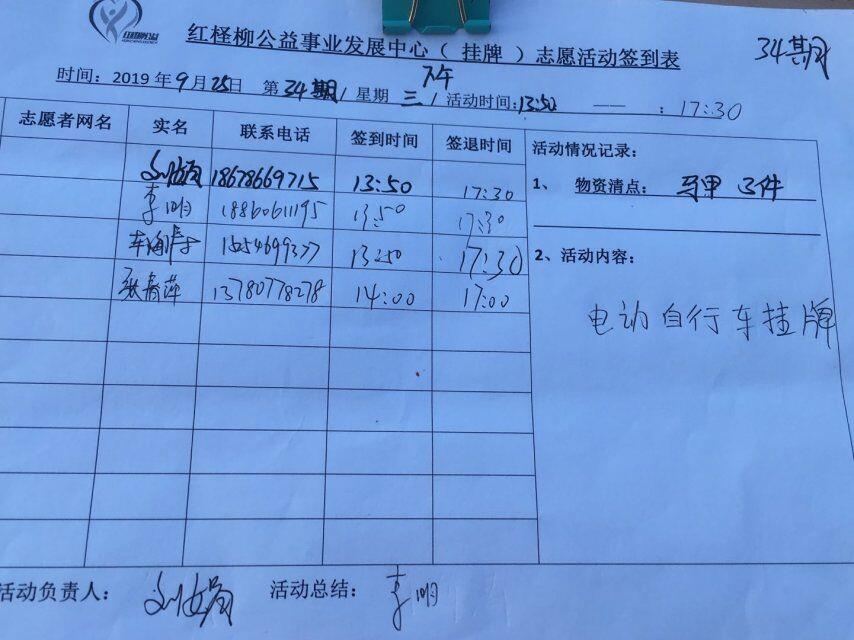 红柽柳公益事业发展中心（ 挂牌 ）志愿活动签到表
34期
时间：2019年9月25日 第34期/ 星期 三/ 下午 活动时间:13:50 —— : 17:30
志愿者网名 实名 联系电话 签到时间 签退时间 活动情况记录：
18678669715 13:50 17:30
1、 物资清点： 马甲 3件
李明 18860611195 13:50 17:30
13:50 17:30
2、活动内容：
13780778278 14:00 17:00
电动自行车挂牌
活动负责人： 活动总结： 李明